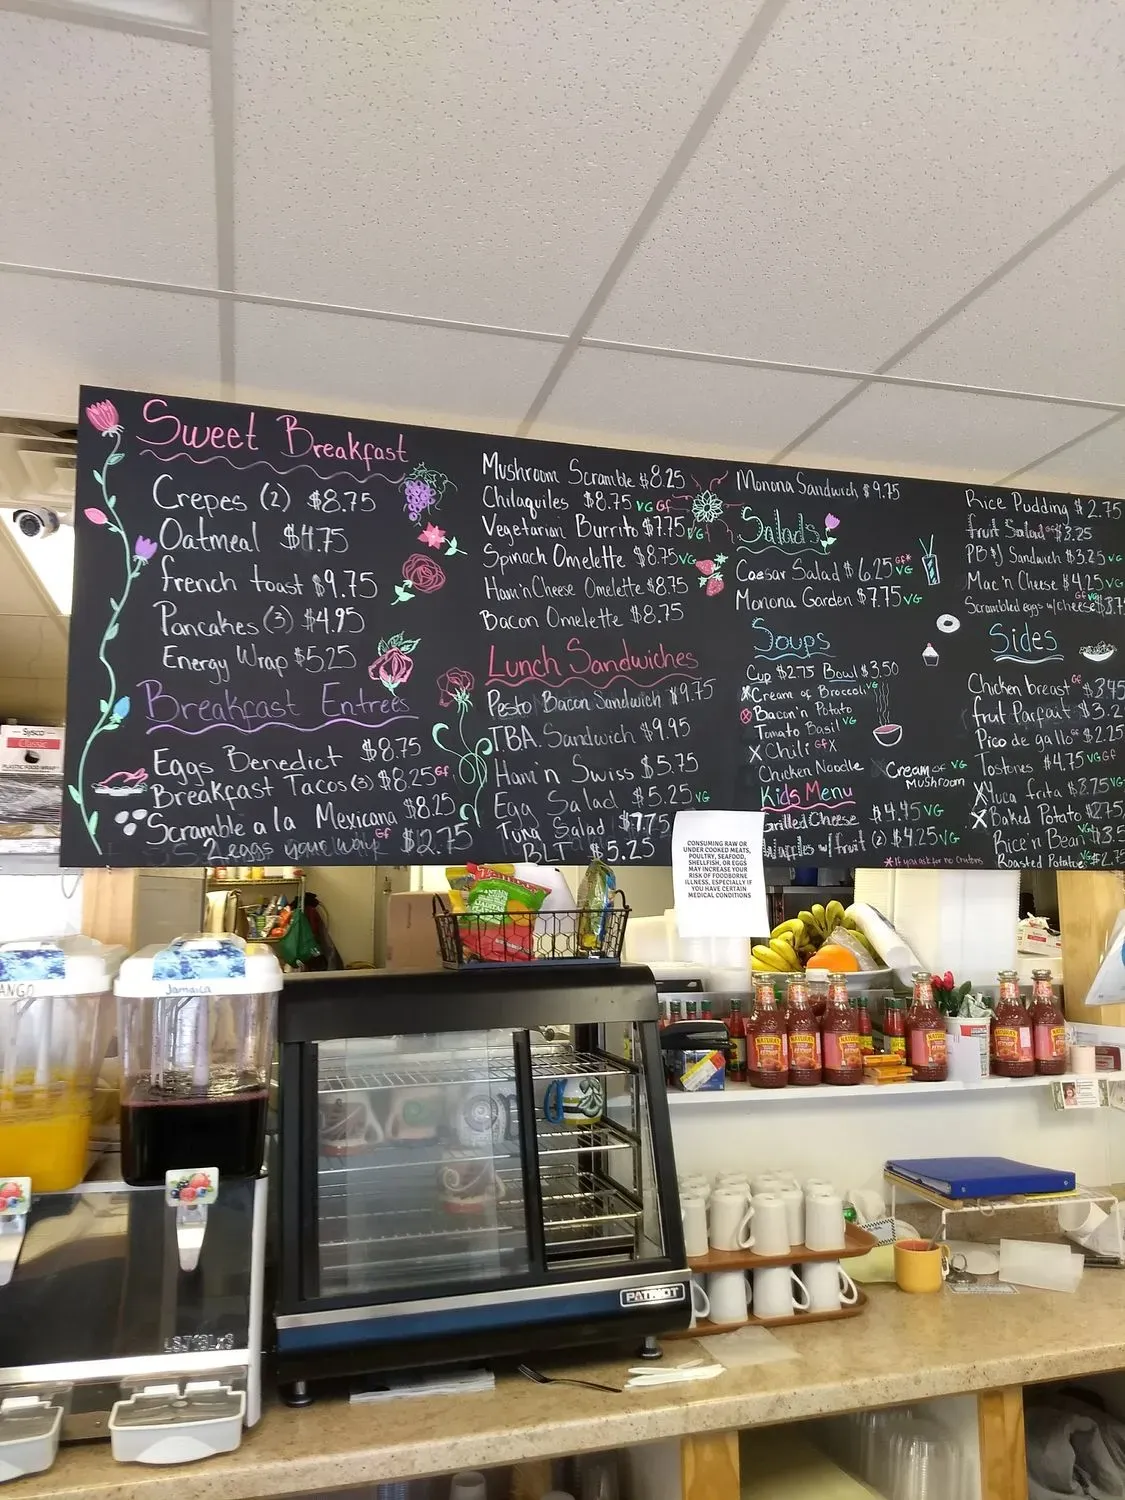 Sweet Breakfast
Crepes (2) $8.75
Oatmeal $4.75
french toast $9.75
Pancakes (3) $4.95
Energy Wrap $5.25
Breakfast Entrees
Eggs Benedict $8.75
Breakfast Tacos (3) $8.25 GF
Scramble a la Mexicana $8.25
2 eggs your way GF $2.75
Mushroom Scramble $8.25
Chilaquiles $8.75 VG GF
Vegetarian Burrito $7.75 VG
Spinach Omelette $8.75 VG
Ham'n Cheese Omelette $8.75
Bacon Omelette $8.75
Lunch Sandwiches
Pesto Bacon Sandwich $9.75
TBA. Sandwich $9.95
Ham'n Swiss $5.75
Egg Salad $5.25 VG
Tuna Salad $7.75
BLT $5.25
Monona Sandwich $9.75
Salads
Caesar Salad $6.25 GF* VG
Monona Garden $7.75 VG
Soups
Cup $2.75 Bowl $3.50
X Cream of Broccoli VG
Bacon'n Potato
Tomato Basil VG
X Chili GF X
Chicken Noodle
Cream of VG
Mushroom
Kids Menu
Grilled Cheese $4.45 VG
Waffles w/fruit (2) $4.25 VG
*If you ask for no Croutons
Rice Pudding $2.75
fruit Salad GF $3.25
PB&J Sandwich $3.25 VG
Mac'n Cheese $4.25 VG
Scrambled eggs w/cheese GF VG $3.7
Sides
Chicken breast GF $3.45
fruit Parfait $3.2
Pico de gallo GF $2.25
Tostones $4.75 VG GF
X Yuca frita $3.75 VG
X Baked Potato $2.75
Rice n' Bean VG
Roasted Potatoe VG $2.7
CONSUMING RAW OR
UNDER COOKED MEATS,
POULTRY, SEAFOOD,
SHELLFISH, OR EGGS
MAY INCREASE YOUR
RISK OF FOODBORNE
ILLNESS, ESPECIALLY IF
YOU HAVE CERTAIN
MEDICAL CONDITIONS
Sysco
Classic
PLASTIC FOOD WRAP
ANGO
Jamaica
PATRIOT